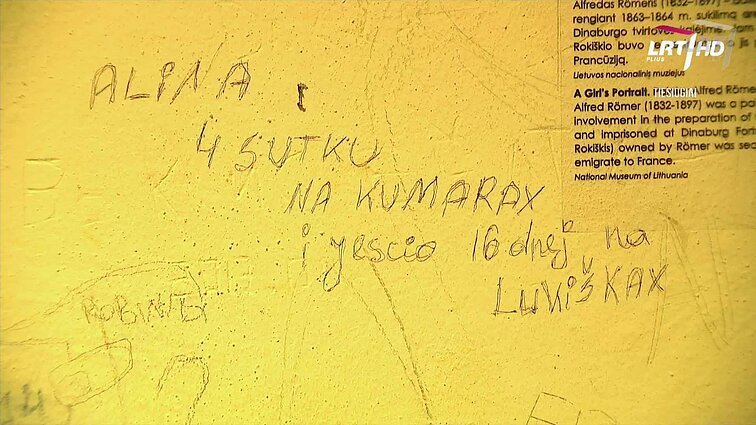 ALINA
4 SUTKU
NA KUMARAX
i yescio 16 dnej na
LUKIŠKAX
Alfredas Römeris (1832-1897) –
rengiant 1863–1864 m. sukilimą
Dinaburgo tvirtovės kalėjime.
Rokiškio buvo
Prancūziją.
Lietuvos nacionalinis muziejus
A Girl's Portrait. Alfred Röme
Alfred Römer (1832-1897) was a pa
involvement in the preparation of
and imprisoned at Dinaburg Fort
Rokiškis) owned by Römer was seq
emigrate to France.
National Museum of Lithuania
LRT HD
PLIUS
TIESIOGIAI